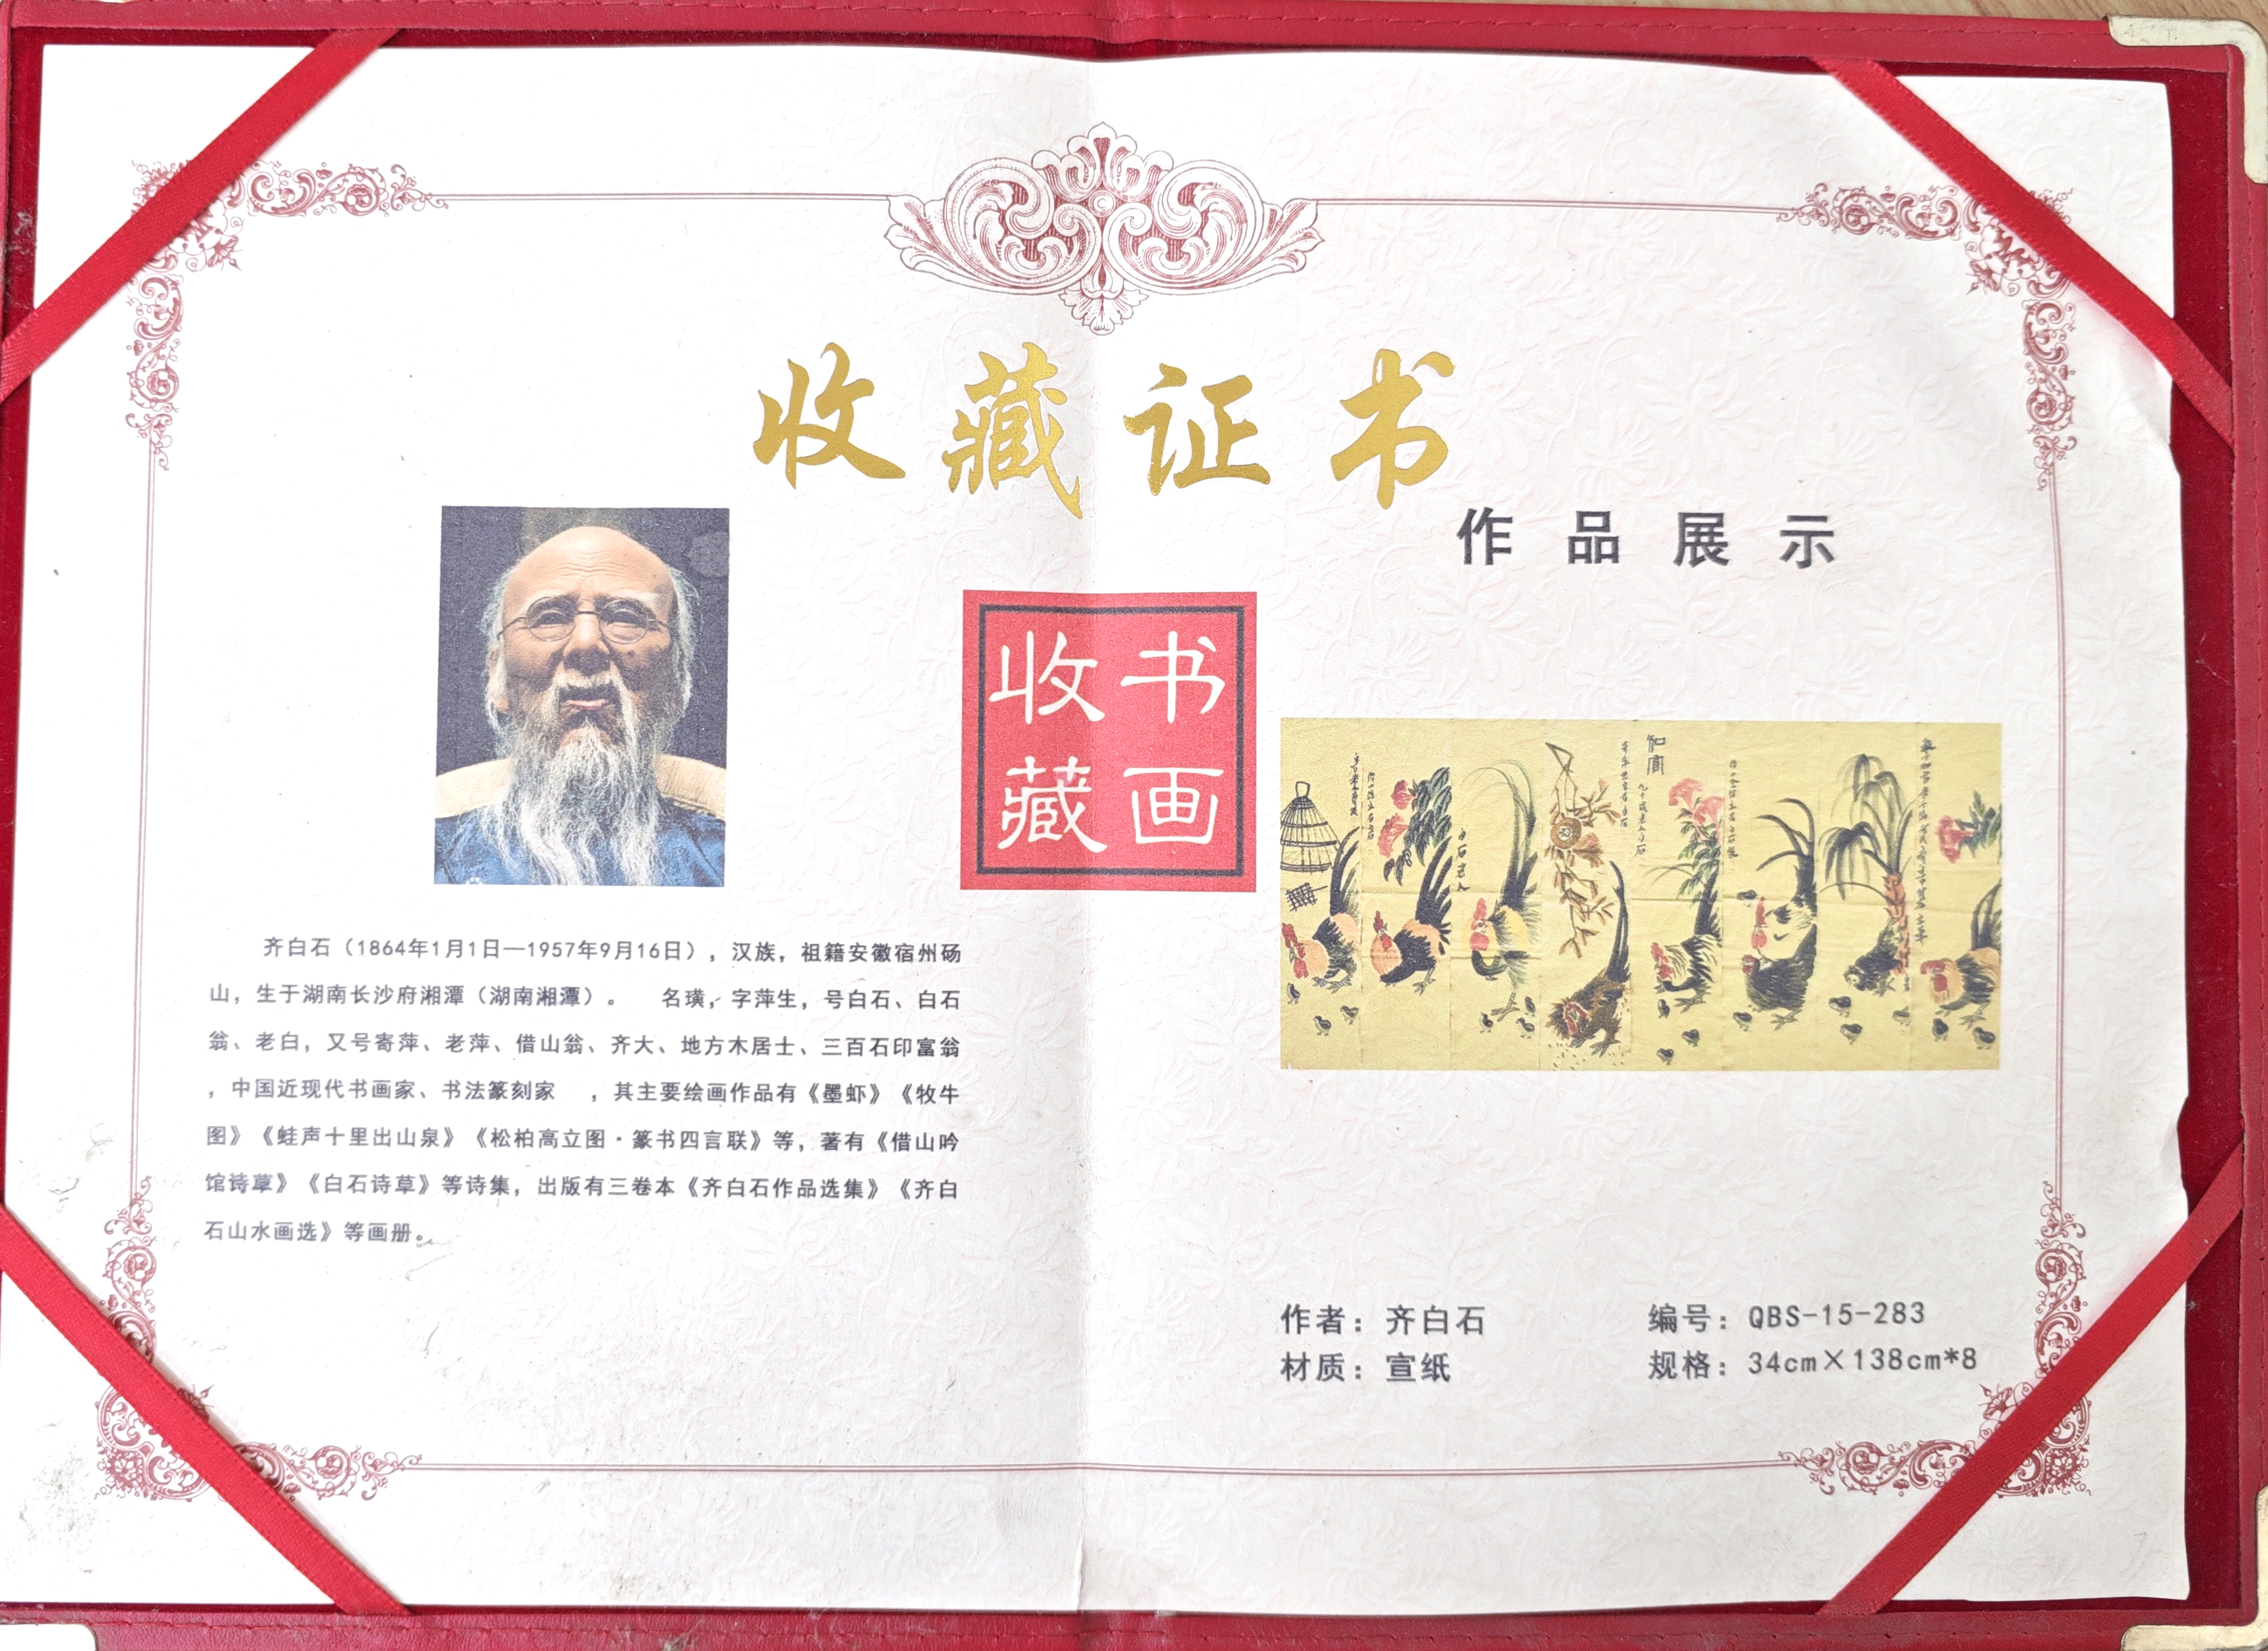 收藏证书
作品展示
收 书
藏 画
齐白石（1864年1月1日—1957年9月16日），汉族，祖籍安徽宿州砀
山，生于湖南长沙府湘潭（湖南湘潭）。 名璜，字萍生，号白石、白石
翁、老白，又号寄萍、老萍、借山翁、齐大、地方木居士、三百石印富翁
，中国近现代书画家、书法篆刻家 ，其主要绘画作品有《墨虾》《牧牛
图》《蛙声十里出山泉》《松柏高立图·篆书四言联》等，著有《借山吟
馆诗草》《白石诗草》等诗集，出版有三卷本《齐白石作品选集》《齐白
石山水画选》等画册。
白石老人
作者：齐白石 编号：QBS-15-283
材质：宣纸 规格：34cm×138cm*8